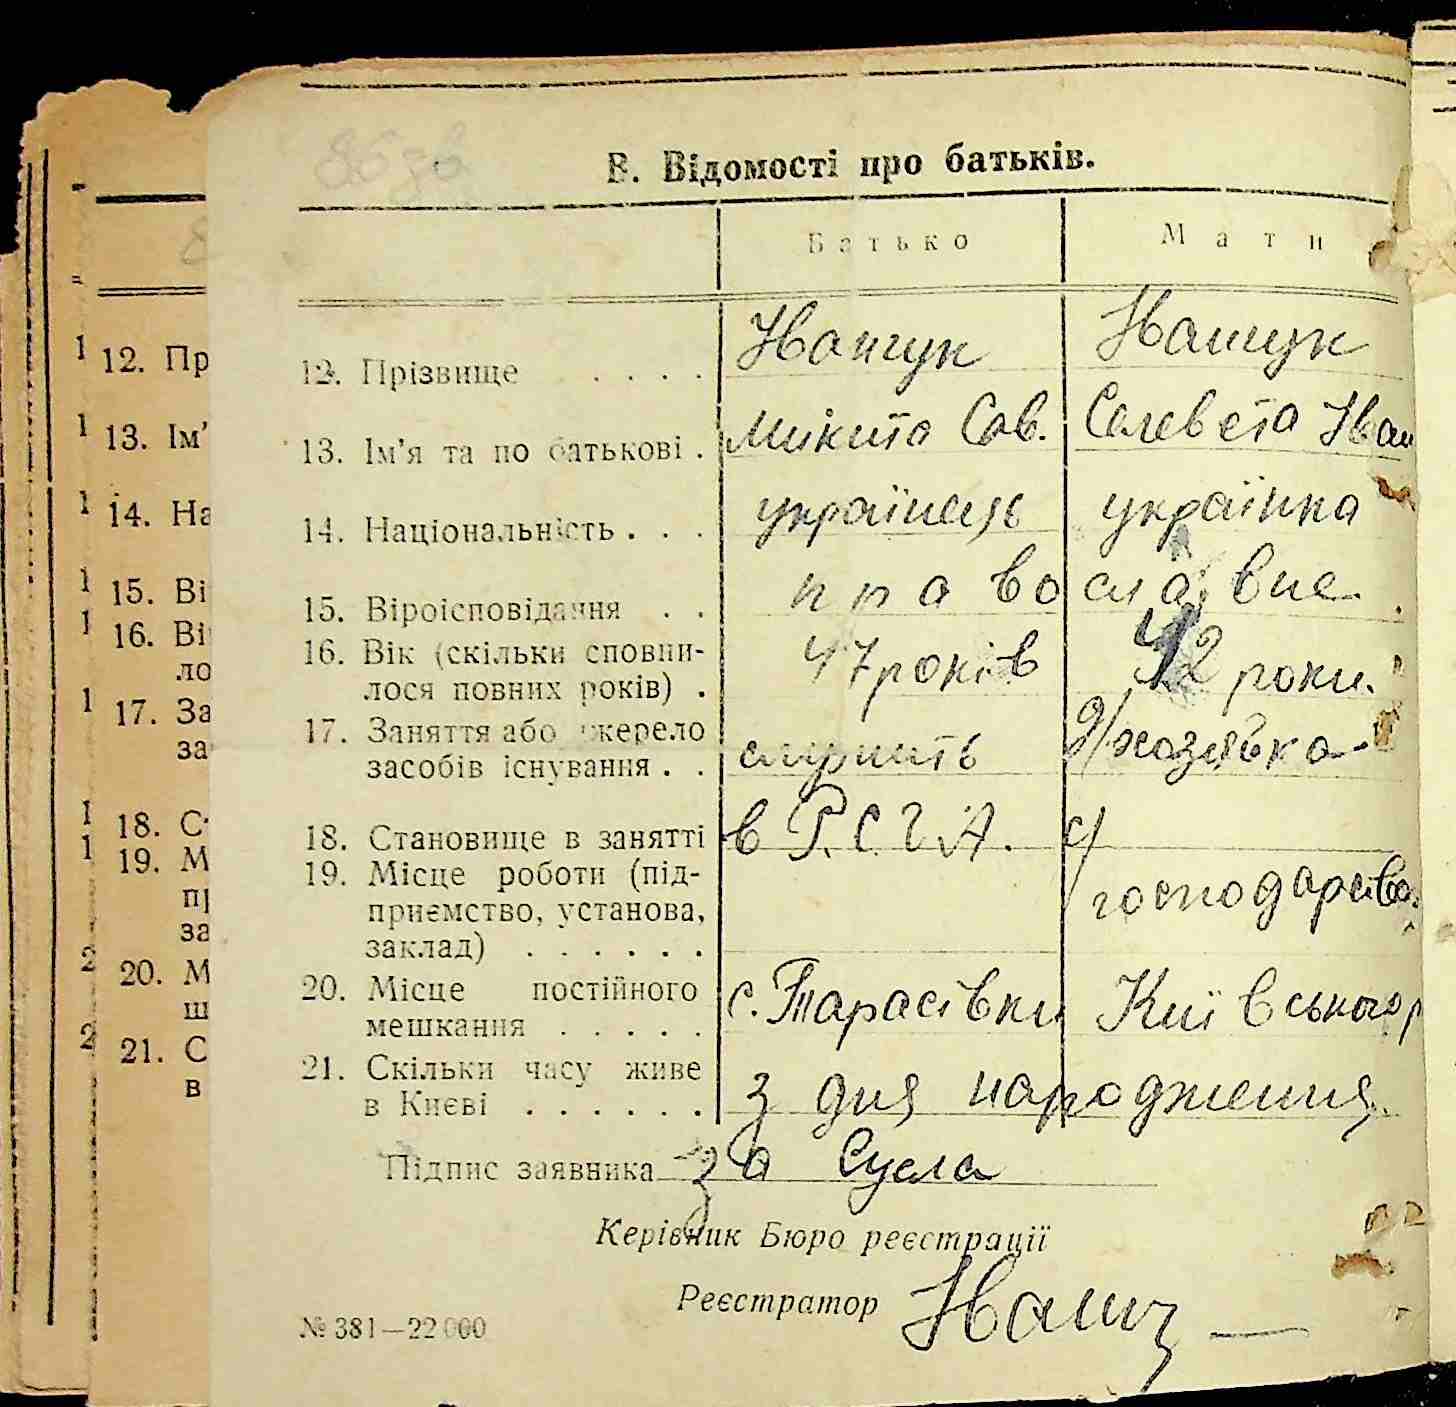 В. Відомості про батьків.
Батько Мати
12. Прізвище . . . . Іващук Іващук
13. Ім'я та по батькові . Микита Сав. Салевета Іван
14. Національність . . . українець українка
15. Віроісповідання . . православне
16. Вік (скільки сповни- 47 років 42 роки.
лося повних років) .
17. Заняття або джерело служить д/хозяйка
засобів існування . .
18. Становище в занятті в Р.С.Ч.А. с/
19. Місце роботи (під- господарство
приємство, установа,
заклад) . . . . . .
20. Місце постійного с. Тарасівки Київського р
мешкання . . . . .
21. Скільки часу живе з дня народження
в Києві . . . . . .
Підпис заявника за
Керівник Бюро реєстрації
Реєстратор
№ 381—22000
12. Пр
13. Ім'
14. На
15. Ві
16. Ві
ло
17. За
за
18. С
19. М
пр
за
20. М
ш
21. С
в